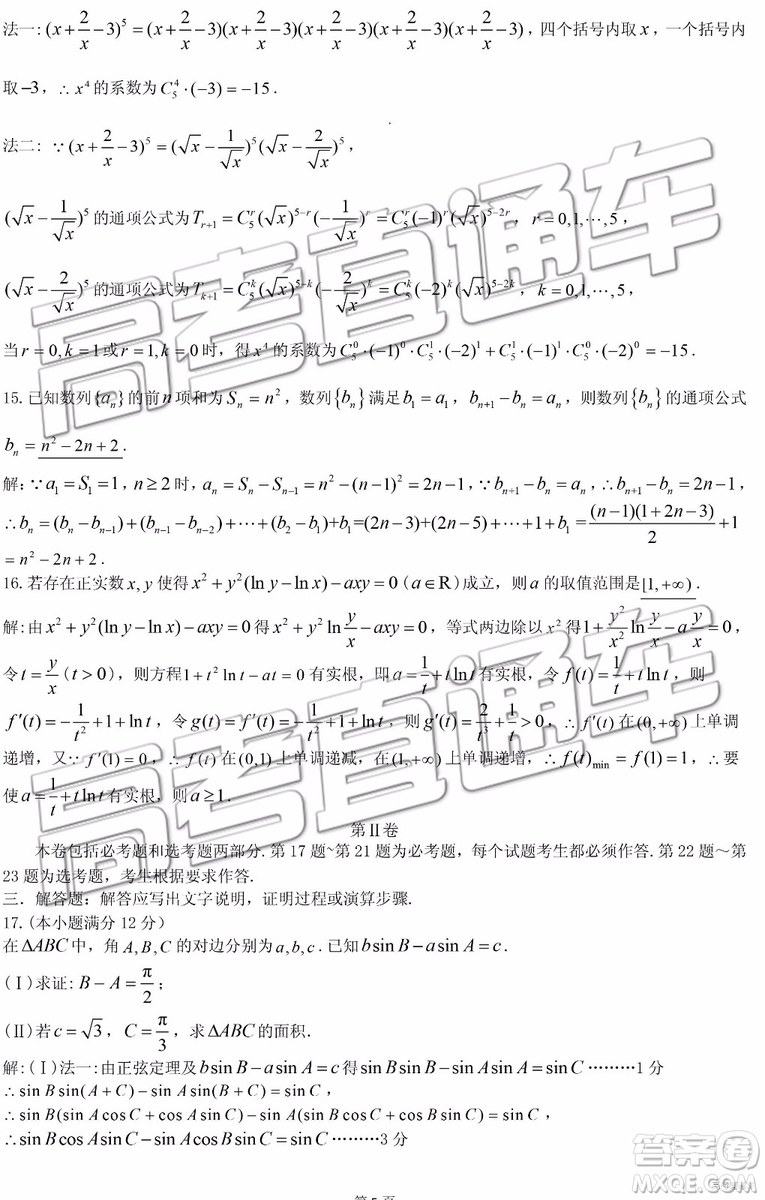 法一:(x+2/x-3)^5=(x+2/x-3)(x+2/x-3)(x+2/x-3)(x+2/x-3)(x+2/x-3),四个括号内取x,一个括号内
取-3,∴x^4的系数为C_5^4·(-3)=-15.
法二:∵(x+2/x-3)^5=(√x-1/√x)^5(√x-2/√x)^5,
(√x-1/√x)^5的通项公式为T_{r+1}=C_5^r(√x)^{5-r}(-1/√x)^r=C_5^r(-1)^r(√x)^{5-2r}, r=0,1,⋯,5,
(√x-2/√x)^5的通项公式为T_{k+1}=C_5^k(√x)^{5-k}(-2/√x)^k=C_5^k(-2)^k(√x)^{5-2k},k=0,1,⋯,5,
当r=0,k=1或r=1,k=0时,得x^4的系数为C_5^0·(-1)^0·C_5^1·(-2)^1+C_5^1·(-1)^1·C_5^0·(-2)^0=-15.
15.已知数列{a_n}的前n项和为S_n=n^2,数列{b_n}满足b_1=a_1,b_{n+1}-b_n=a_n,则数列{b_n}的通项公式
b_n=n^2-2n+2.
解:∵a_1=S_1=1,n≥2时,a_n=S_n-S_{n-1}=n^2-(n-1)^2=2n-1,∵b_{n+1}-b_n=a_n,∴b_{n+1}-b_n=2n-1,
∴b_n=(b_n-b_{n-1})+(b_{n-1}-b_{n-2})+⋯+(b_2-b_1)+b_1=(2n-3)+(2n-5)+⋯+1+b_1=(n-1)(1+2n-3)/2+1
=n^2-2n+2.
16.若存在正实数x,y使得x^2+y^2(ln y-ln x)-axy=0(a∈R)成立,则a的取值范围是[1,+∞).
解:由x^2+y^2(ln y-ln x)-axy=0得x^2+y^2 ln y/x-axy=0,等式两边除以x^2得1+y^2/x^2 ln y/x-a y/x=0,
令t=y/x(t>0),则方程1+t^2 ln t-at=0有实根,即a=1/t+t ln t有实根,令f(t)=1/t+t ln t,则
f′(t)=-1/t^2+1+ln t,令g(t)=f′(t)=-1/t^2+1+ln t,则g′(t)=2/t^3+1/t>0,∴f′(t)在(0,+∞)上单调
递增,又∵f′(1)=0,∴f(t)在(0,1)上单调递减,在(1,+∞)上单调递增,∴f(t)_min=f(1)=1,∴要
使a=1/t+t ln t有实根,则a≥1.
第Ⅱ卷
本卷包括必考题和选考题两部分.第17题~第21题为必考题,每个试题考生都必须作答.第22题～第
23题为选考题,考生根据要求作答.
三.解答题:解答应写出文字说明,证明过程或演算步骤.
17.(本小题满分12分)
在ΔABC中,角A,B,C的对边分别为a,b,c.已知b sin B-a sin A=c.
(Ⅰ)求证:B-A=π/2;
(Ⅱ)若c=√3,C=π/3,求ΔABC的面积.
解:(Ⅰ)法一:由正弦定理及b sin B-a sin A=c得sin B sin B-sin A sin A=sin C ………1分
∴sin B sin(A+C)-sin A sin(B+C)=sin C,
∴sin B(sin A cos C+cos A sin C)-sin A(sin B cos C+cos B sin C)=sin C,
∴sin B cos A sin C-sin A cos B sin C=sin C ………3分
第5页
高考直通车
答案卷
MXQE.COM